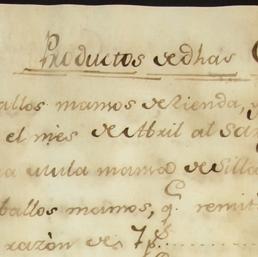 Productos dedhas C
allos mansos de rienda, y
el mes de Abril al Sar
a mula mansa de silla
ballos mansos, q. remit
razón de 7 p.s